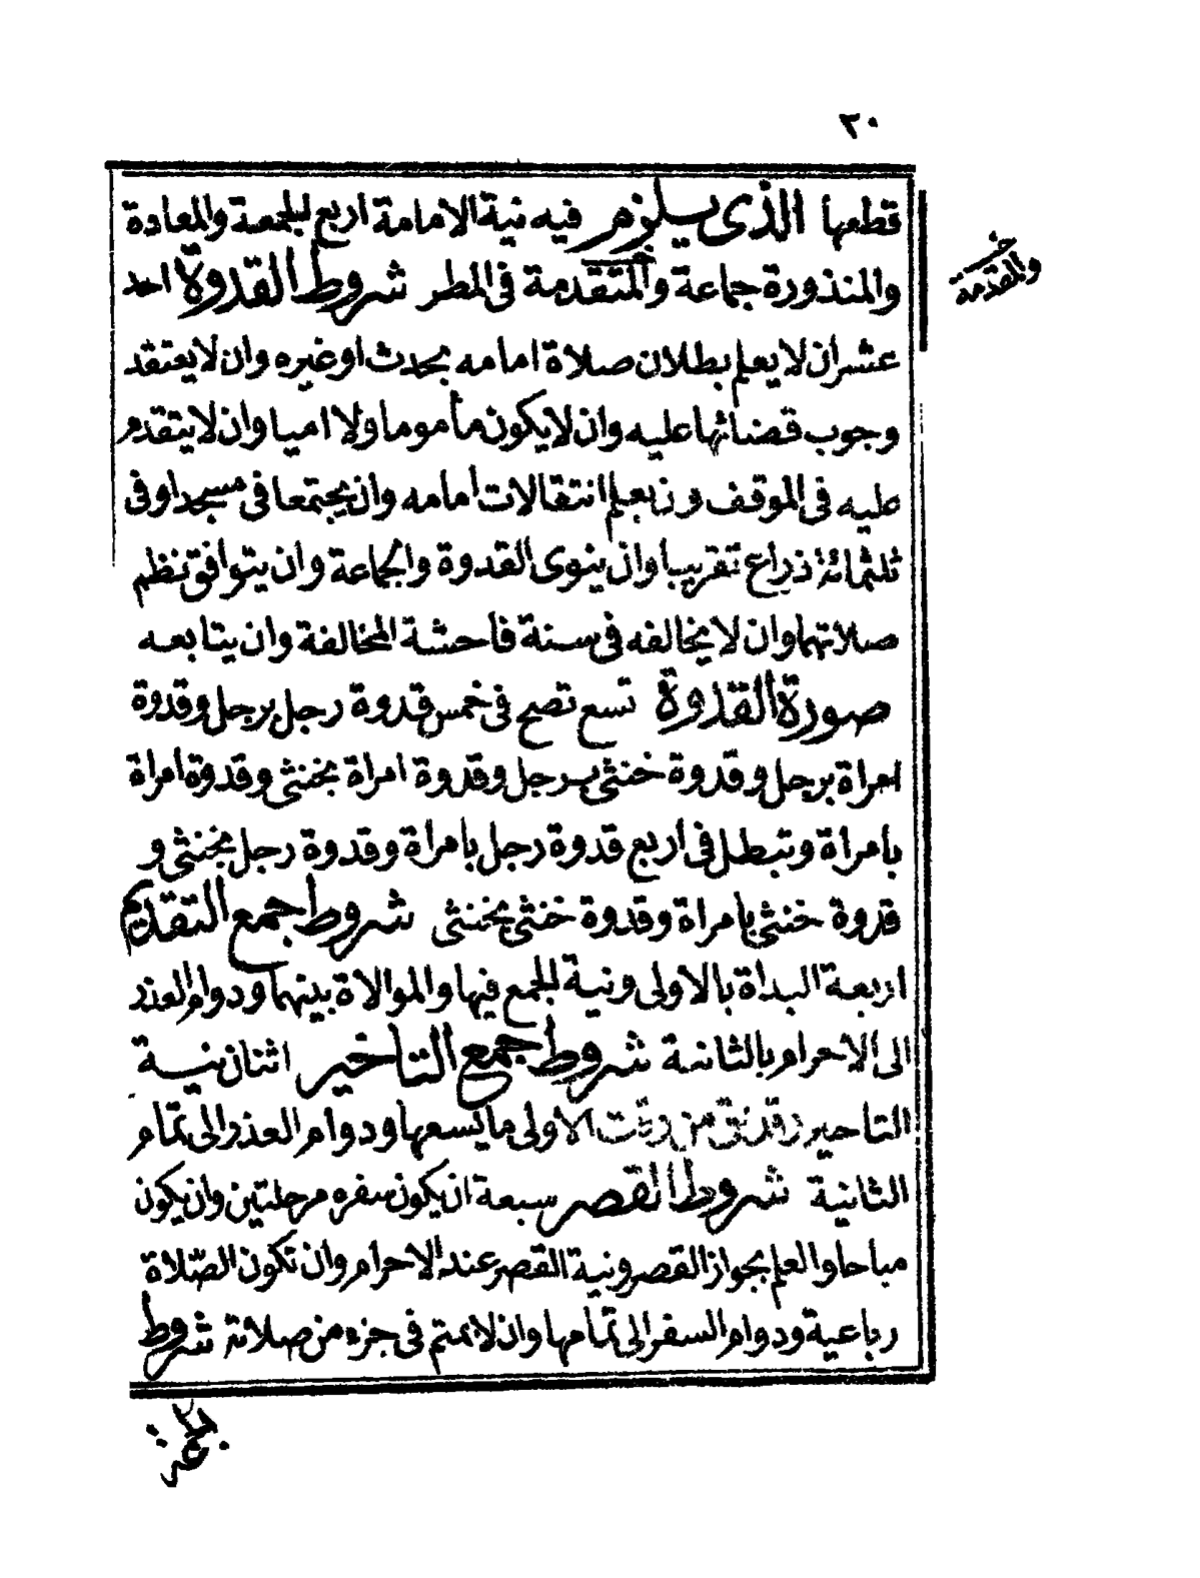 ٢٠
قطعها الذى يلزم فيه نية الامامة اربع الجمعة والمعادة
والمنذورة جماعة والمتقدمة فى المطر شروط القدوة احد
والمقدمة
عشر ان لا يعلم بطلان صلاة امامه بحدث او غيره وان لا يعتقد
وجوب قضائها عليه وان لا يكون مأموما ولا اميا وان لا يتقدم
عليه فى الموقف وان يعلم انتقالات امامه وان يجتمعا فى مسجد او فى
ثلثمائة ذراع تقريبا وان ينوى القدوة والجماعة وان يتوافق نظم
صلاتهما وان لا يخالفه فى سنة فاحشة المخالفة وان يتابعه
صورة القدوة تسع تصح فى خمس قدوة رجل برجل وقدوة
امراة برجل وقدوة خنثى برجل وقدوة امراة بخنثى وقدوة امراة
بامراة وتبطل فى اربع قدوة رجل بامراة وقدوة رجل بخنثى و
قدوة خنثى بامراة وقدوة خنثى بخنثى شروط جمع التقديم
اربعة البداة بالاولى ونية الجمع فيها والموالاة بينهما ودوام العذر
الى الاحرام بالثانية شروط جمع التاخير اثنان نية
التاخير وقد بقى من وقت الاولى ما يسعها ودوام العذر الى تمام
الثانية شروط القصر سبعة ان يكون سفره مرحلتين وان يكون
مباحا والعلم بجواز القصر ونية القصر عند الاحرام وان تكون الصّلاة
رباعية ودوام السفر الى تمامها وان لا يمتم فى جزء من صلاته شروط
الجمعة